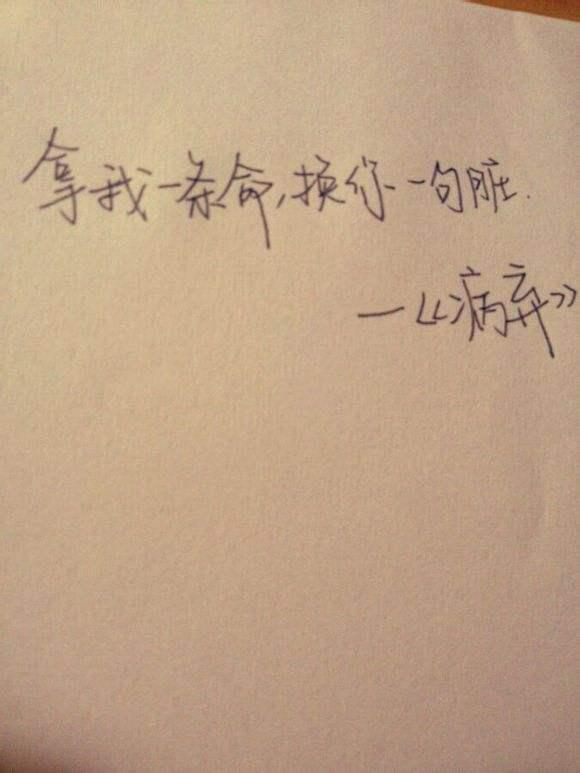 拿我一条命,换你一句脏.
—《病弃》